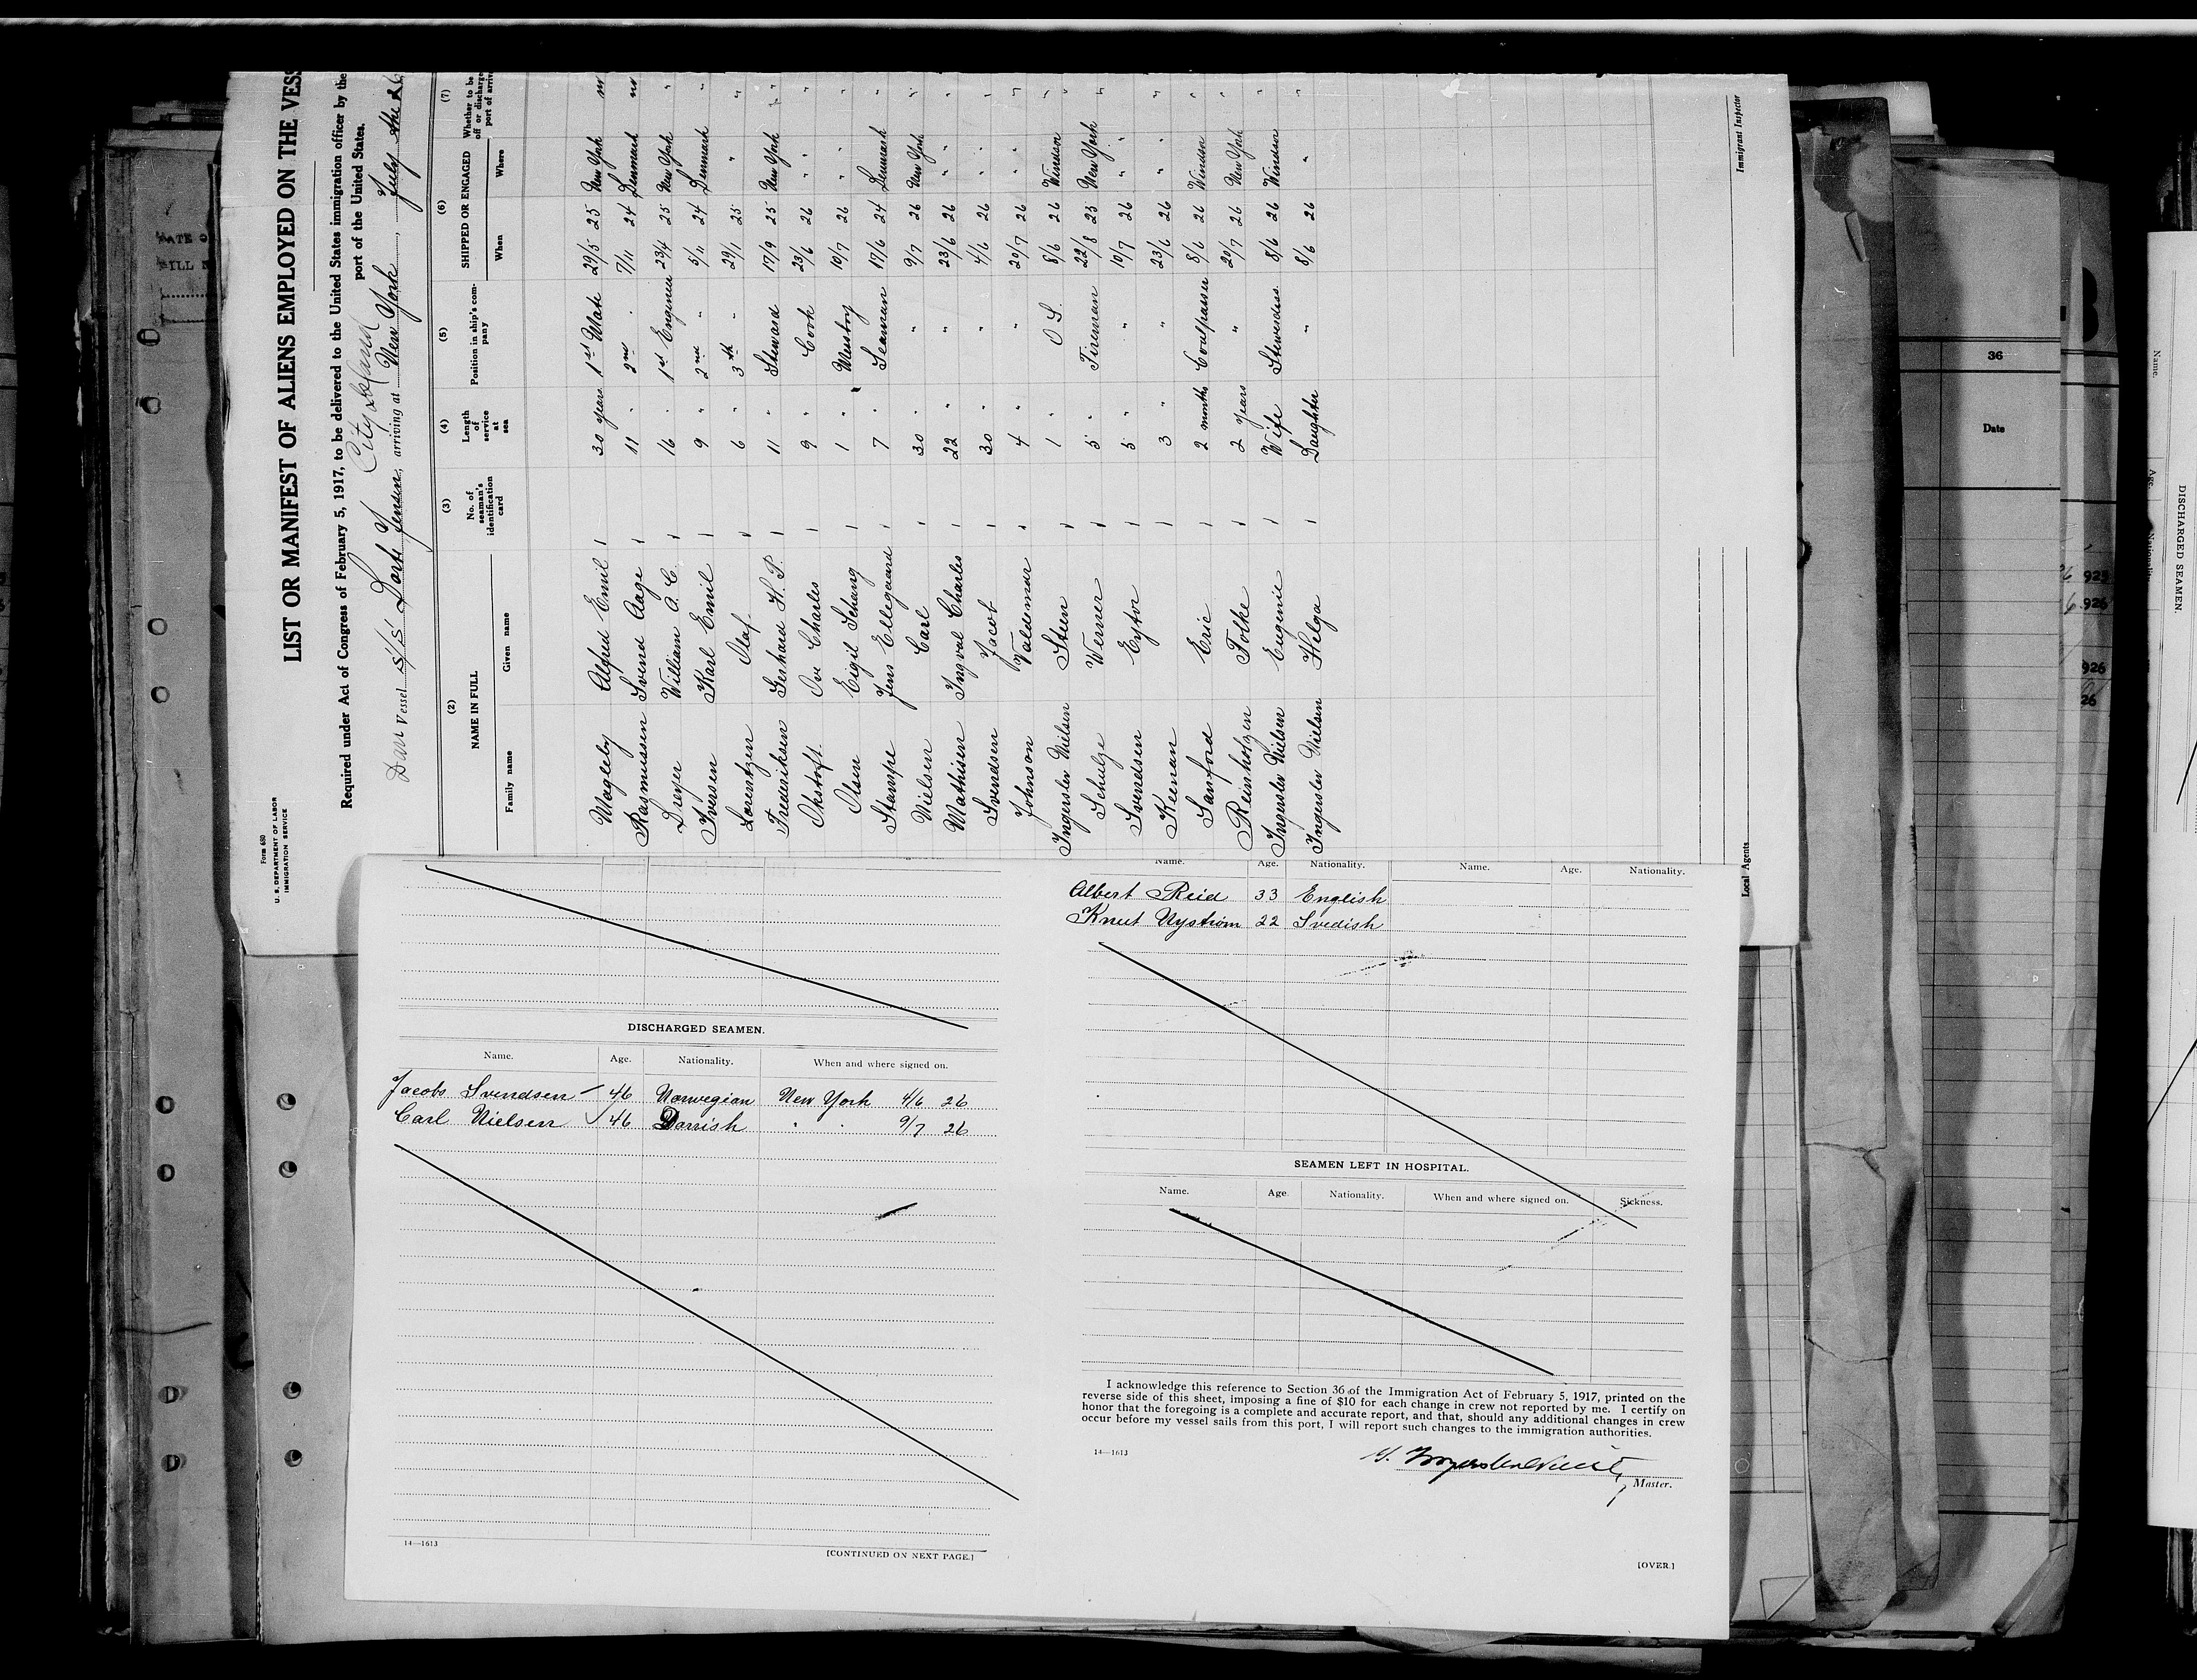 Form 680
U. S. DEPARTMENT OF LABOR
IMMIGRATION SERVICE
LIST OR MANIFEST OF ALIENS EMPLOYED ON THE VESS
Required under Act of Congress of February 5, 1917, to be delivered to the United States immigration officer by the
port of the United States.
City Island
Dan Vessel S/S Dorte Jensen, arriving at New York, July the 26
(2) (3) (4) (5) (6) (7)
NAME IN FULL No. of seaman's identification card Length of service at sea Position in ship's company SHIPPED OR ENGAGED Whether to be off or discharge port of arriv
Family name Given name When Where
Magleby Alfred Emil 30 years 1st Mate 29/5 25 New York
Rasmussen Svend Aage 11 " 2nd " 7/11 24 Denmark
Dreyer William A. C. 16 " 1st Engineer 23/4 25 New York "
Iversen Karl Emil 9 " 2nd " 5/11 24 Denmark "
Lorentzen Olaf 6 " 3th " 29/1 25 " "
Frederiksen Gerhard H. P. 11 " Steward 17/9 25 New York "
Okstoft Ove Charles 9 " Cook 23/6 26 " "
Olsen Eigil Schang 1 " Messboy 10/7 26 " "
Stampe Jens Ellegaard 7 " Seaman 17/6 24 Denmark "
Nielsen Carl 30 " " 9/7 26 New York "
Mathisen Ingval Charles 22 " " 23/6 26 " "
Svendsen Jacob 30 " " 4/6 26 " "
Johnson Valdemar 4 " " 20/7 26 " "
Ingerslev Nielsen Steen 1 " O S. 8/6 26 Windsor "
Schulze Werner 5 " Fireman 22/8 25 New York "
Svendsen Eytor 5 " " 10/7 26 " "
Keenan 3 " " 23/6 26 " "
Sanford Eric 2 months Coalpasser 8/6 26 Windsor "
Reinholtzen Folke 2 years " 20/7 26 New York "
Ingerslev Nielsen Eugenie Wife Stewerdess 8/6 26 Windsor "
Ingerslev Nielsen Helga Daughter " 8/6 26 " "
Local Agents
Immigrant Inspector
DISCHARGED SEAMEN.
Name. Age. Nationality. When and where signed on.
Jacobs Svendsen 46 Norwegian New York 4/6 26
Carl Nielsen 46 Danish " " 9/7 26
14—1613
[CONTINUED ON NEXT PAGE.]
Name. Age. Nationality. Name. Age. Nationality.
Albert Reid 33 English
Knut Nystrom 22 Svedish
SEAMEN LEFT IN HOSPITAL.
Name. Age. Nationality. When and where signed on. Sickness.
I acknowledge this reference to Section 36 of the Immigration Act of February 5, 1917, printed on the
reverse side of this sheet, imposing a fine of $10 for each change in crew not reported by me. I certify on
honor that the foregoing is a complete and accurate report, and that, should any additional changes in crew
occur before my vessel sails from this port, I will report such changes to the immigration authorities.
14—1613
Master.
[OVER.]
36
Date
925
926
926
26
Name.
Age.
DISCHARGED SEAMEN